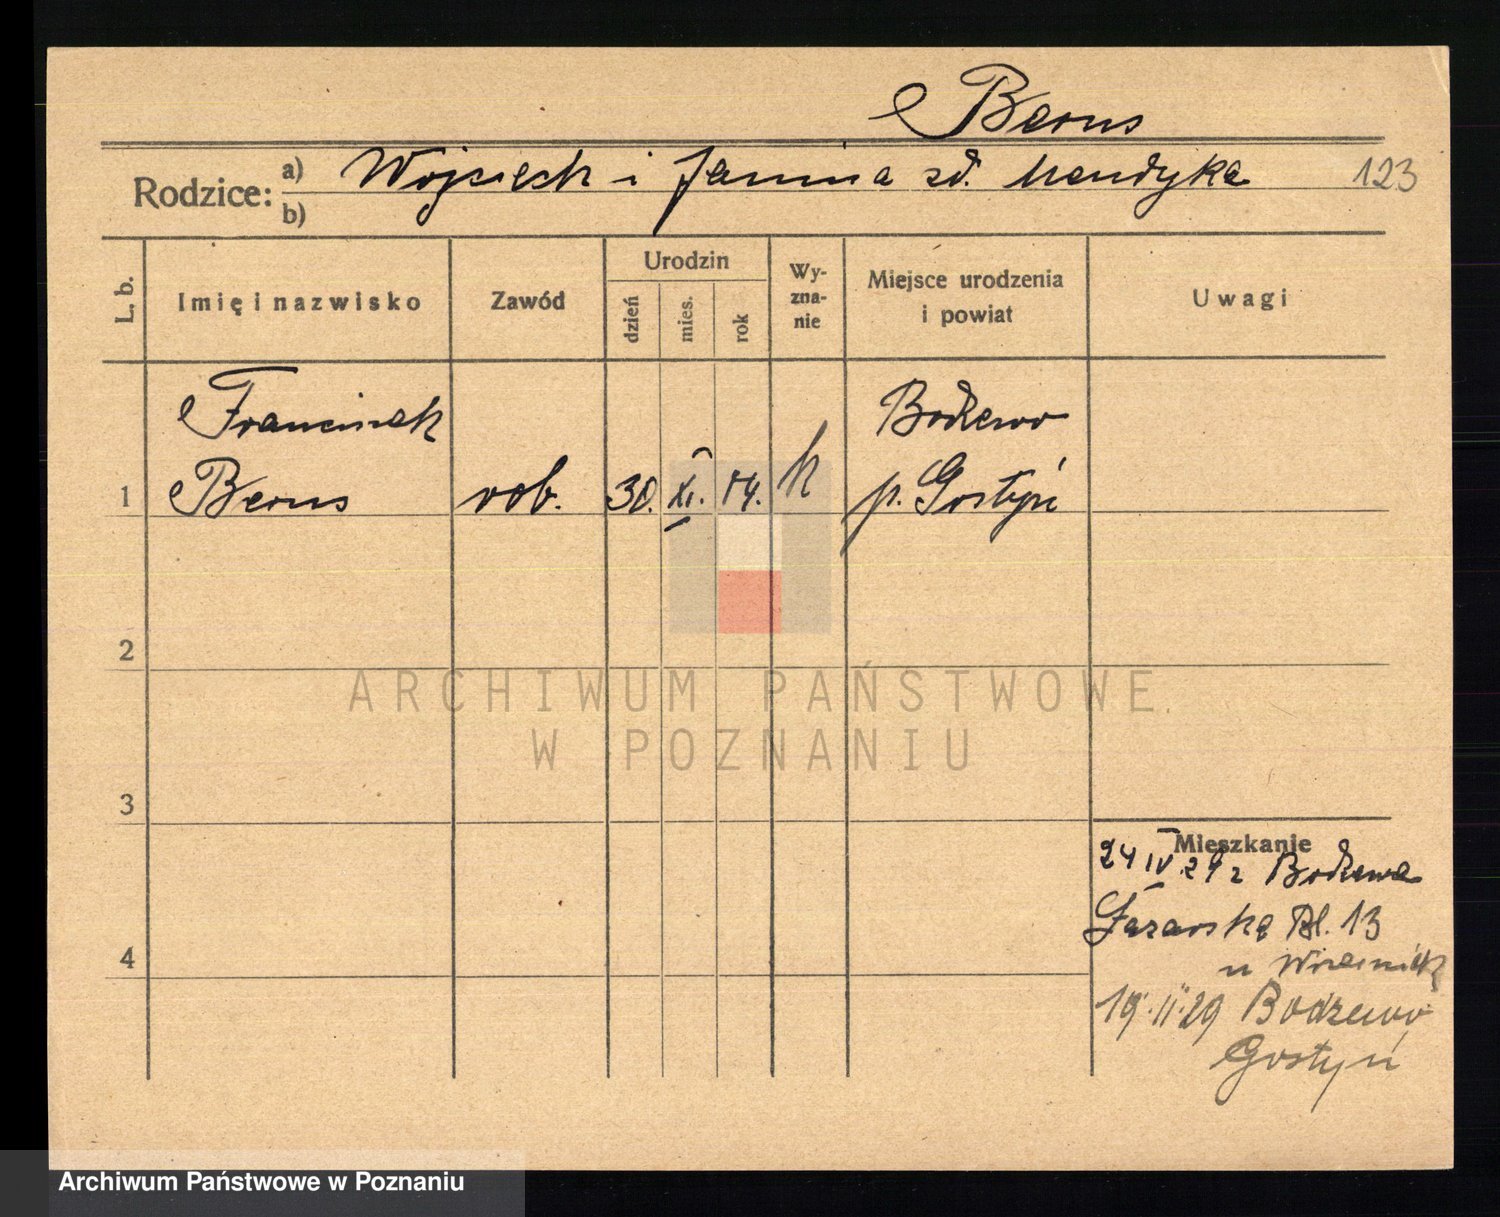 Berus
Rodzice: a) Wojciech i Janina zd. Mendyka 123
b)
L. b. Imię i nazwisko Zawód Urodzin dzień mies. rok Wyzna-nie Miejsce urodzenia i powiat Uwagi
Franciszek Bodzewo
1 Berus rob. 30. XI. k p. Gostyń
2
ARCHIWUM PAŃSTWOWE
W POZNANIU
3
Mieszkanie
24 IV. 29 z Bodzewa
Łazarską Bl. 13
4
u
19. II. 29 Bodzewo
Gostyń
Archiwum Państwowe w Poznaniu